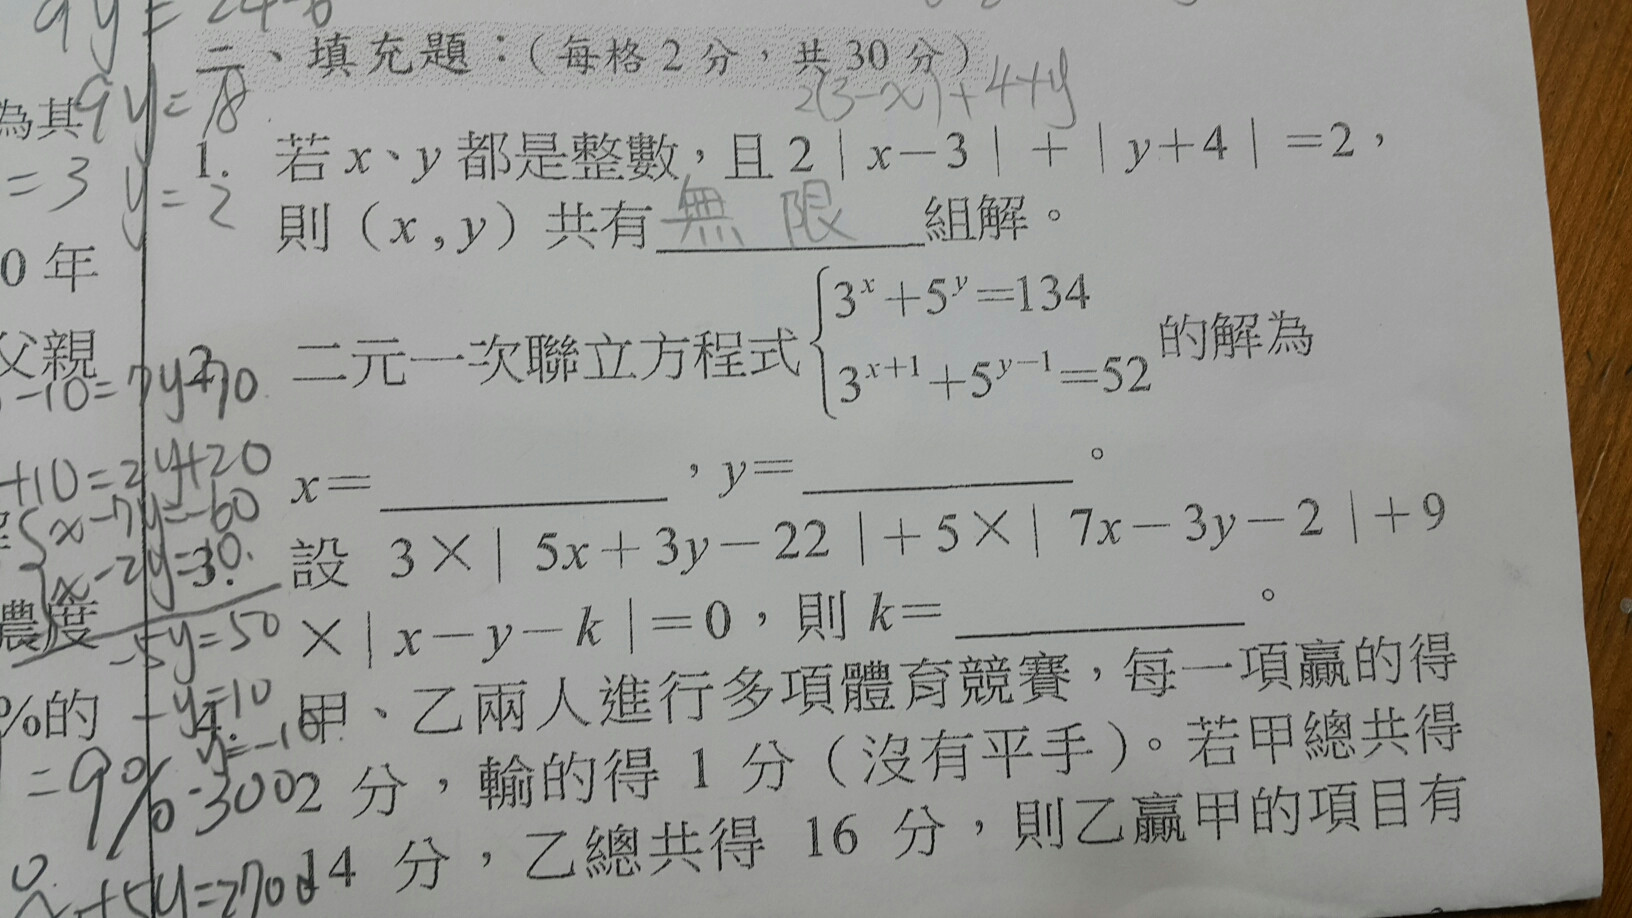 9y=24-6
二、填充題：(每格2分，共30分)
2(3-x)+4+y
為其
9y=18
1. 若x、y都是整數，且2|x-3|+|y+4|=2，
=3 y=2
則(x,y)共有無限組解。
0年
3^x+5^y=134
二元一次聯立方程式
的解為
3^{x+1}+5^{y-1}=52
父親
-10=7y+70
+10=2y+20
x=，y=。
x-7y=-60
3. 設 3×|5x+3y-22|+5×|7x-3y-2|+9
x-2y=10
×|x-y-k|=0，則k=。
農度
-5y=50
%的
-y=10
4. 甲、乙兩人進行多項體育競賽，每一項贏的得
y=-10
=9%·300
2分，輸的得1分(沒有平手)。若甲總共得
14分，乙總共得16分，則乙贏甲的項目有
+5y=270